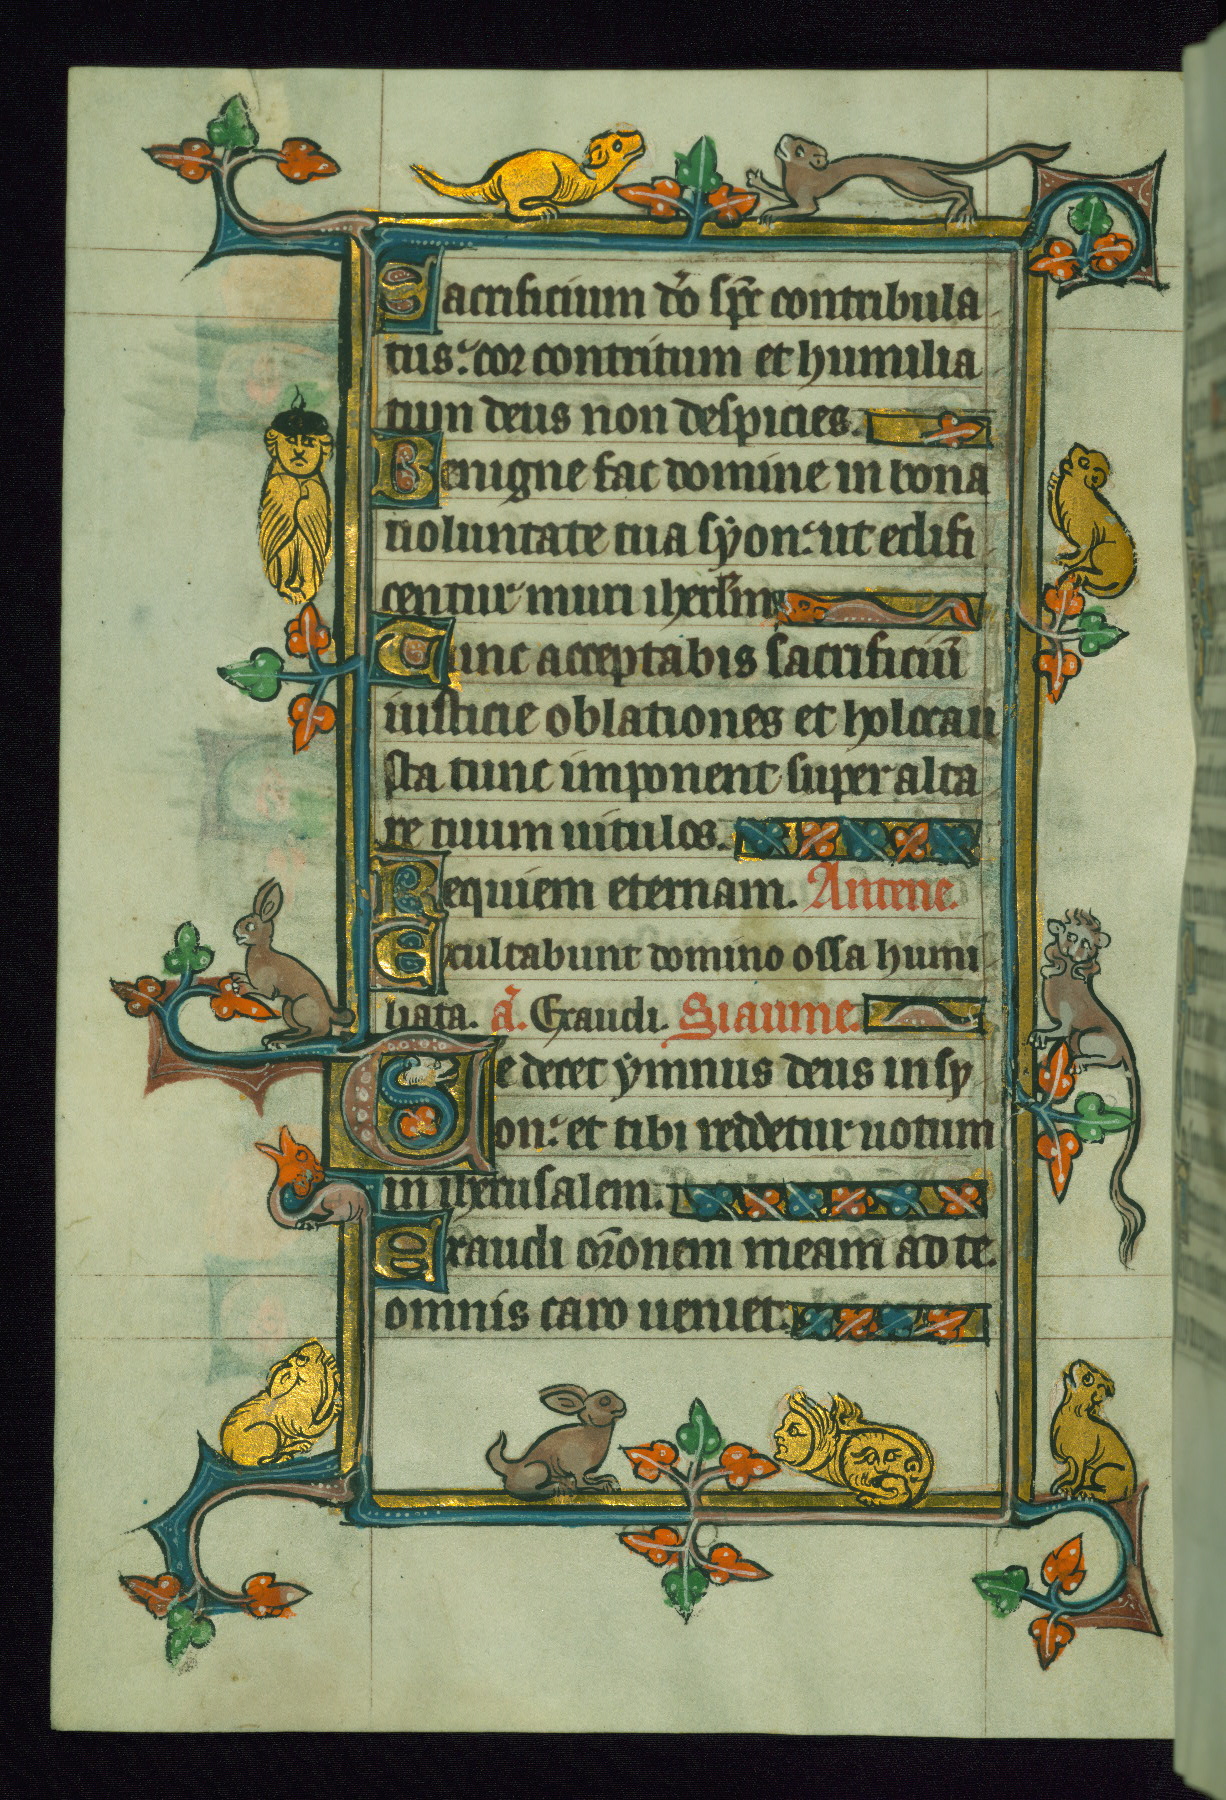 Sacrificium dō spc̄ contribula
tus: cor contritum et humilia
tum deus non despicies.
Benigne fac domine in bona
uoluntate tua sẏon: ut edifi
centur muri iherl̄m
Tunc acceptabis sacrificiū
iusticie oblationes et holocau
sta tunc imponent super alta
re tuum uitulos.
Requiem eternam. Antene.
Exultabunt domino ossa humi
liata. a. Exaudi. Siaume.
Te decet ẏmnus deus in sy
on: et tibi reddetur uotum
in iherusalem.
Exaudi orōnem meam ad te.
omnis caro ueniet.